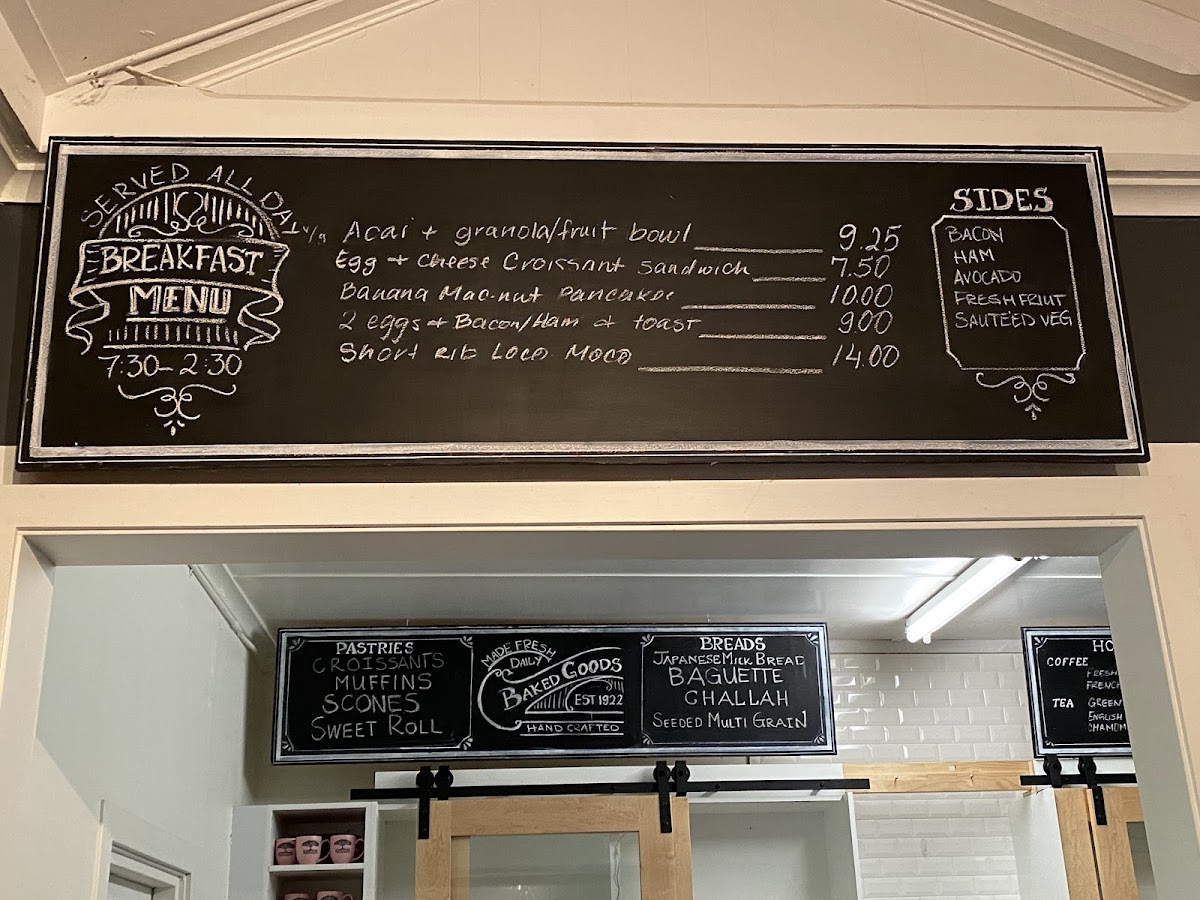 SERVED ALL DAY
BREAKFAST
MENU
7:30-2:30
Acai + granola/fruit bowl 9.25
Egg + Cheese Croissant Sandwich 7.50
Banana Mac-nut Pancake 10.00
2 eggs + Bacon/Ham + toast 9.00
Short Rib Loco Moco 14.00
SIDES
BACON
HAM
AVOCADO
FRESH FRIUT
SAUTE'ED VEG
PASTRIES
CROISSANTS
MUFFINS
SCONES
SWEET ROLL
MADE FRESH
DAILY
BAKED GOODS
EST 1922
HAND CRAFTED
BREADS
JAPANESE MILK BREAD
BAGUETTE
CHALLAH
SEEDED MULTI GRAIN
HO
COFFEE
FRESH
FRENCH
TEA GREEN
ENGLISH
CHAMOM